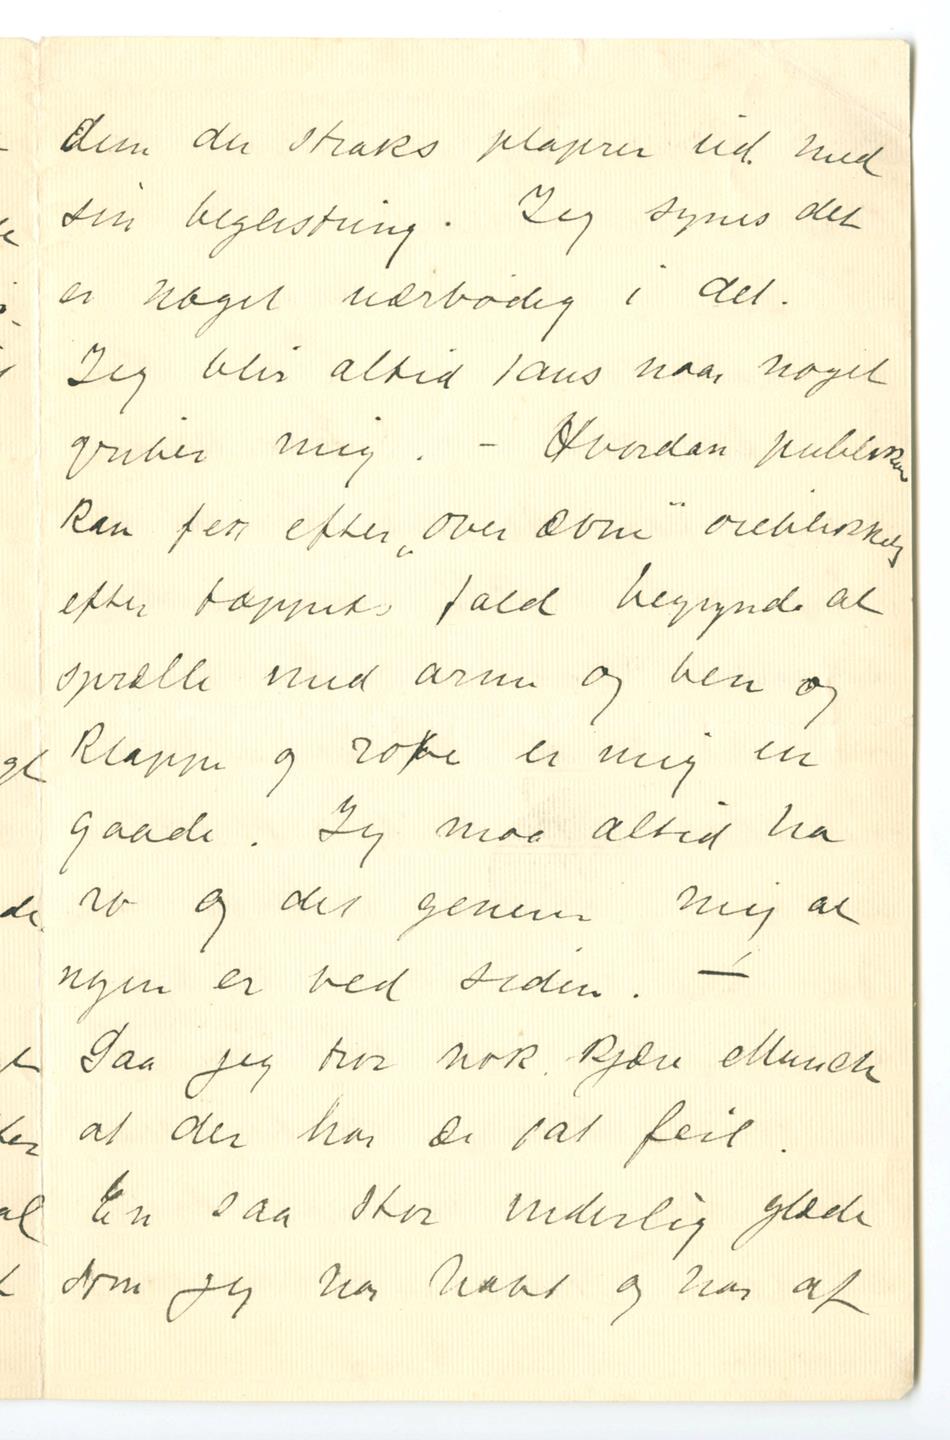 dem der straks plaprer ud med
sin begeistring. Jeg synes det
er noget uærbødig i det.
Jeg blir altid taus naar noget
griber mig. – Hvordan publikum
kan fex efter „over ævne" øieblikkelig
efter tæppets fald begynde at
sprælle med arme og ben og
klappe og robe er mig en
gaade. Jeg maa altid ha
ro og det generer mig at
nogen er ved siden. –
Saa jeg tror nok kjære Munch
at der har De tat feil.
En saa stor inderlig glæde
som jeg har havt og har af